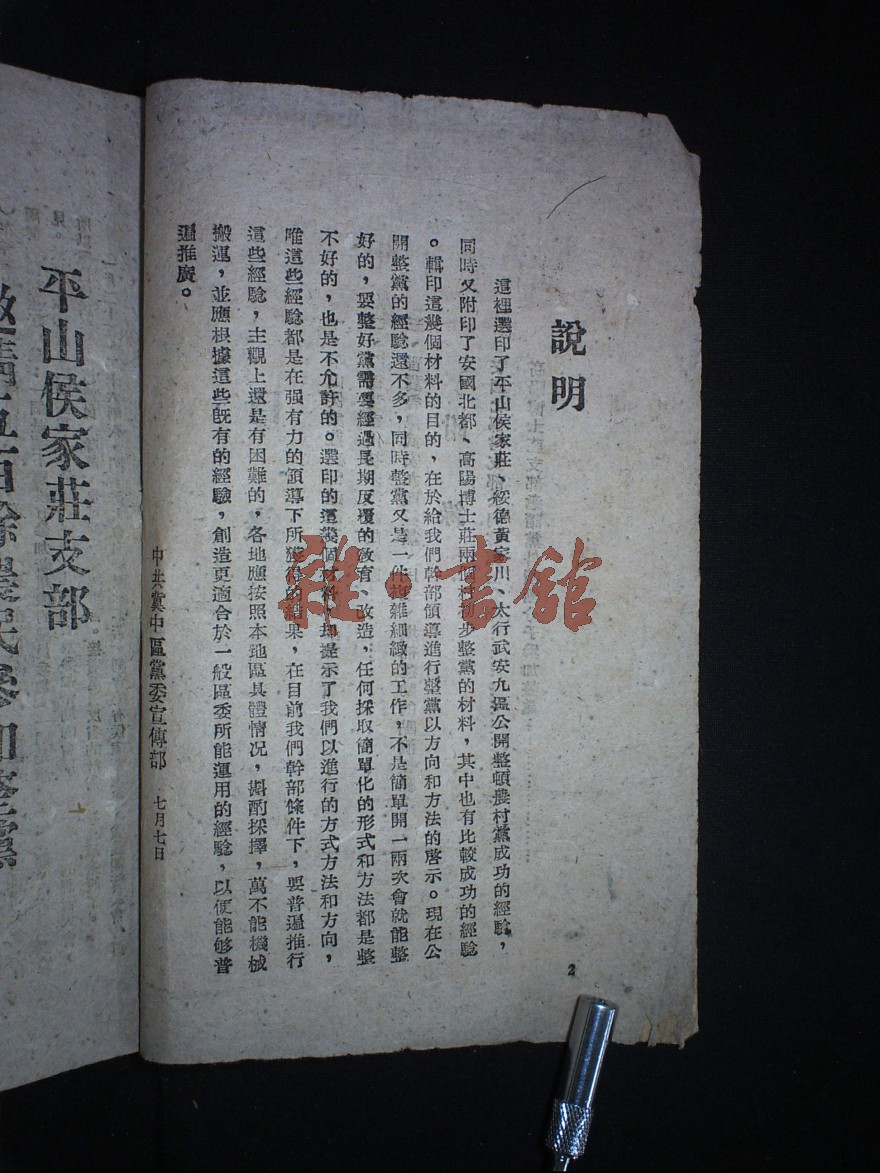 說明
這裡選印了平山侯家莊、綏德黃家川、太行武安九區公開整頓農村黨成功的經驗，
同時又附印了安國北都、高陽博士莊兩個村初步整黨的材料，其中也有比較成功的經驗
。輯印這幾個材料的目的，在於給我們幹部領導進行整黨以方向和方法的啓示。現在公
開整黨的經驗還不多，同時整黨又是一件複雜細緻的工作，不是簡單開一兩次會就能整
好的，要整好黨需要經過長期反覆的教育、改造，任何採取簡單化的形式和方法都是整
不好的，也是不允許的。選印的這幾個材料，却提示了我們以進行的方式方法和方向，
唯這些經驗都是在强有力的領導下所獲得的結果，在目前我們幹部條件下，要普遍推行
這些經驗，主觀上還是有困難的，各地應按照本地區具體情况，斟酌採擇，萬不能機械
搬運，並應根據這些旣有的經驗，創造更適合於一般區委所能運用的經驗，以便能够普
遍推廣。
中共冀中區黨委宣傳部 七月七日
2
平山侯家莊支部
邀請五百餘農民參加整黨
雜·書館